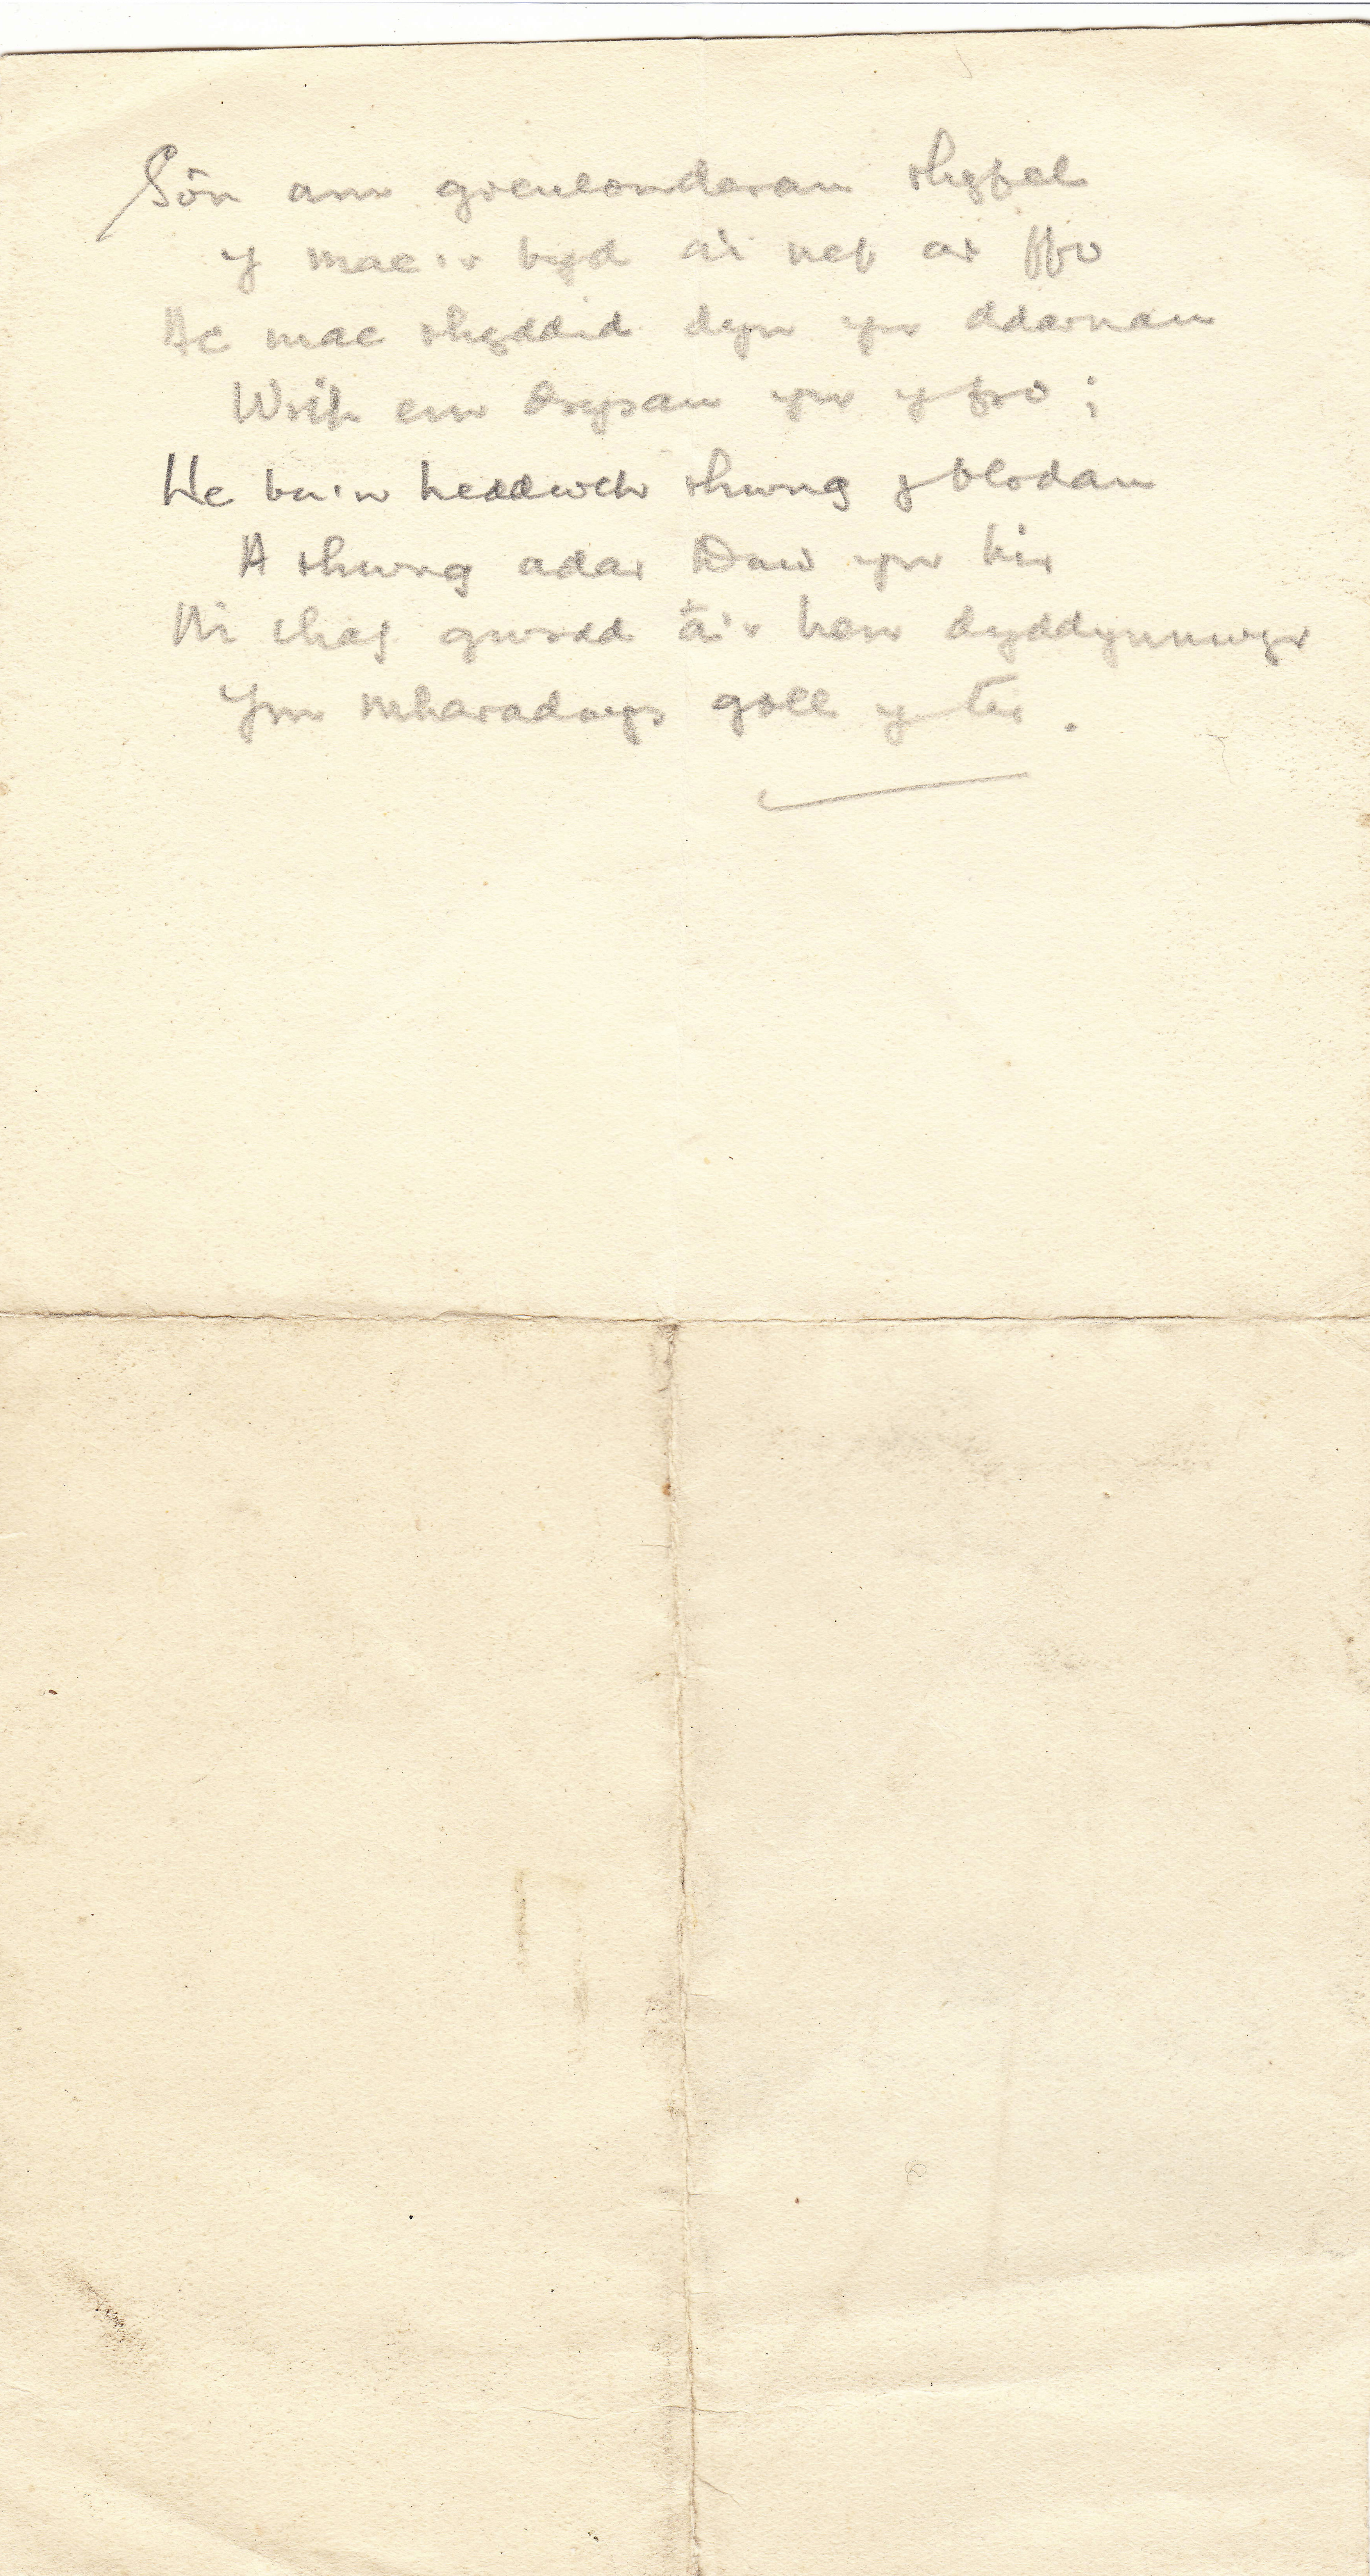 Sôn am greulonderau rhyfel
Y mae'r byd a'i nef ar ffo
Ac mae rhyddid dyn yn ddarnau
Wrth ein drysau yn y fro;
He bu'n heddwch rhwng y blodau
A rhwng adar Duw yn hir
Ni chaf gwrdd â'r hen dyddynnwyr
Ym mharadwys goll y tir.